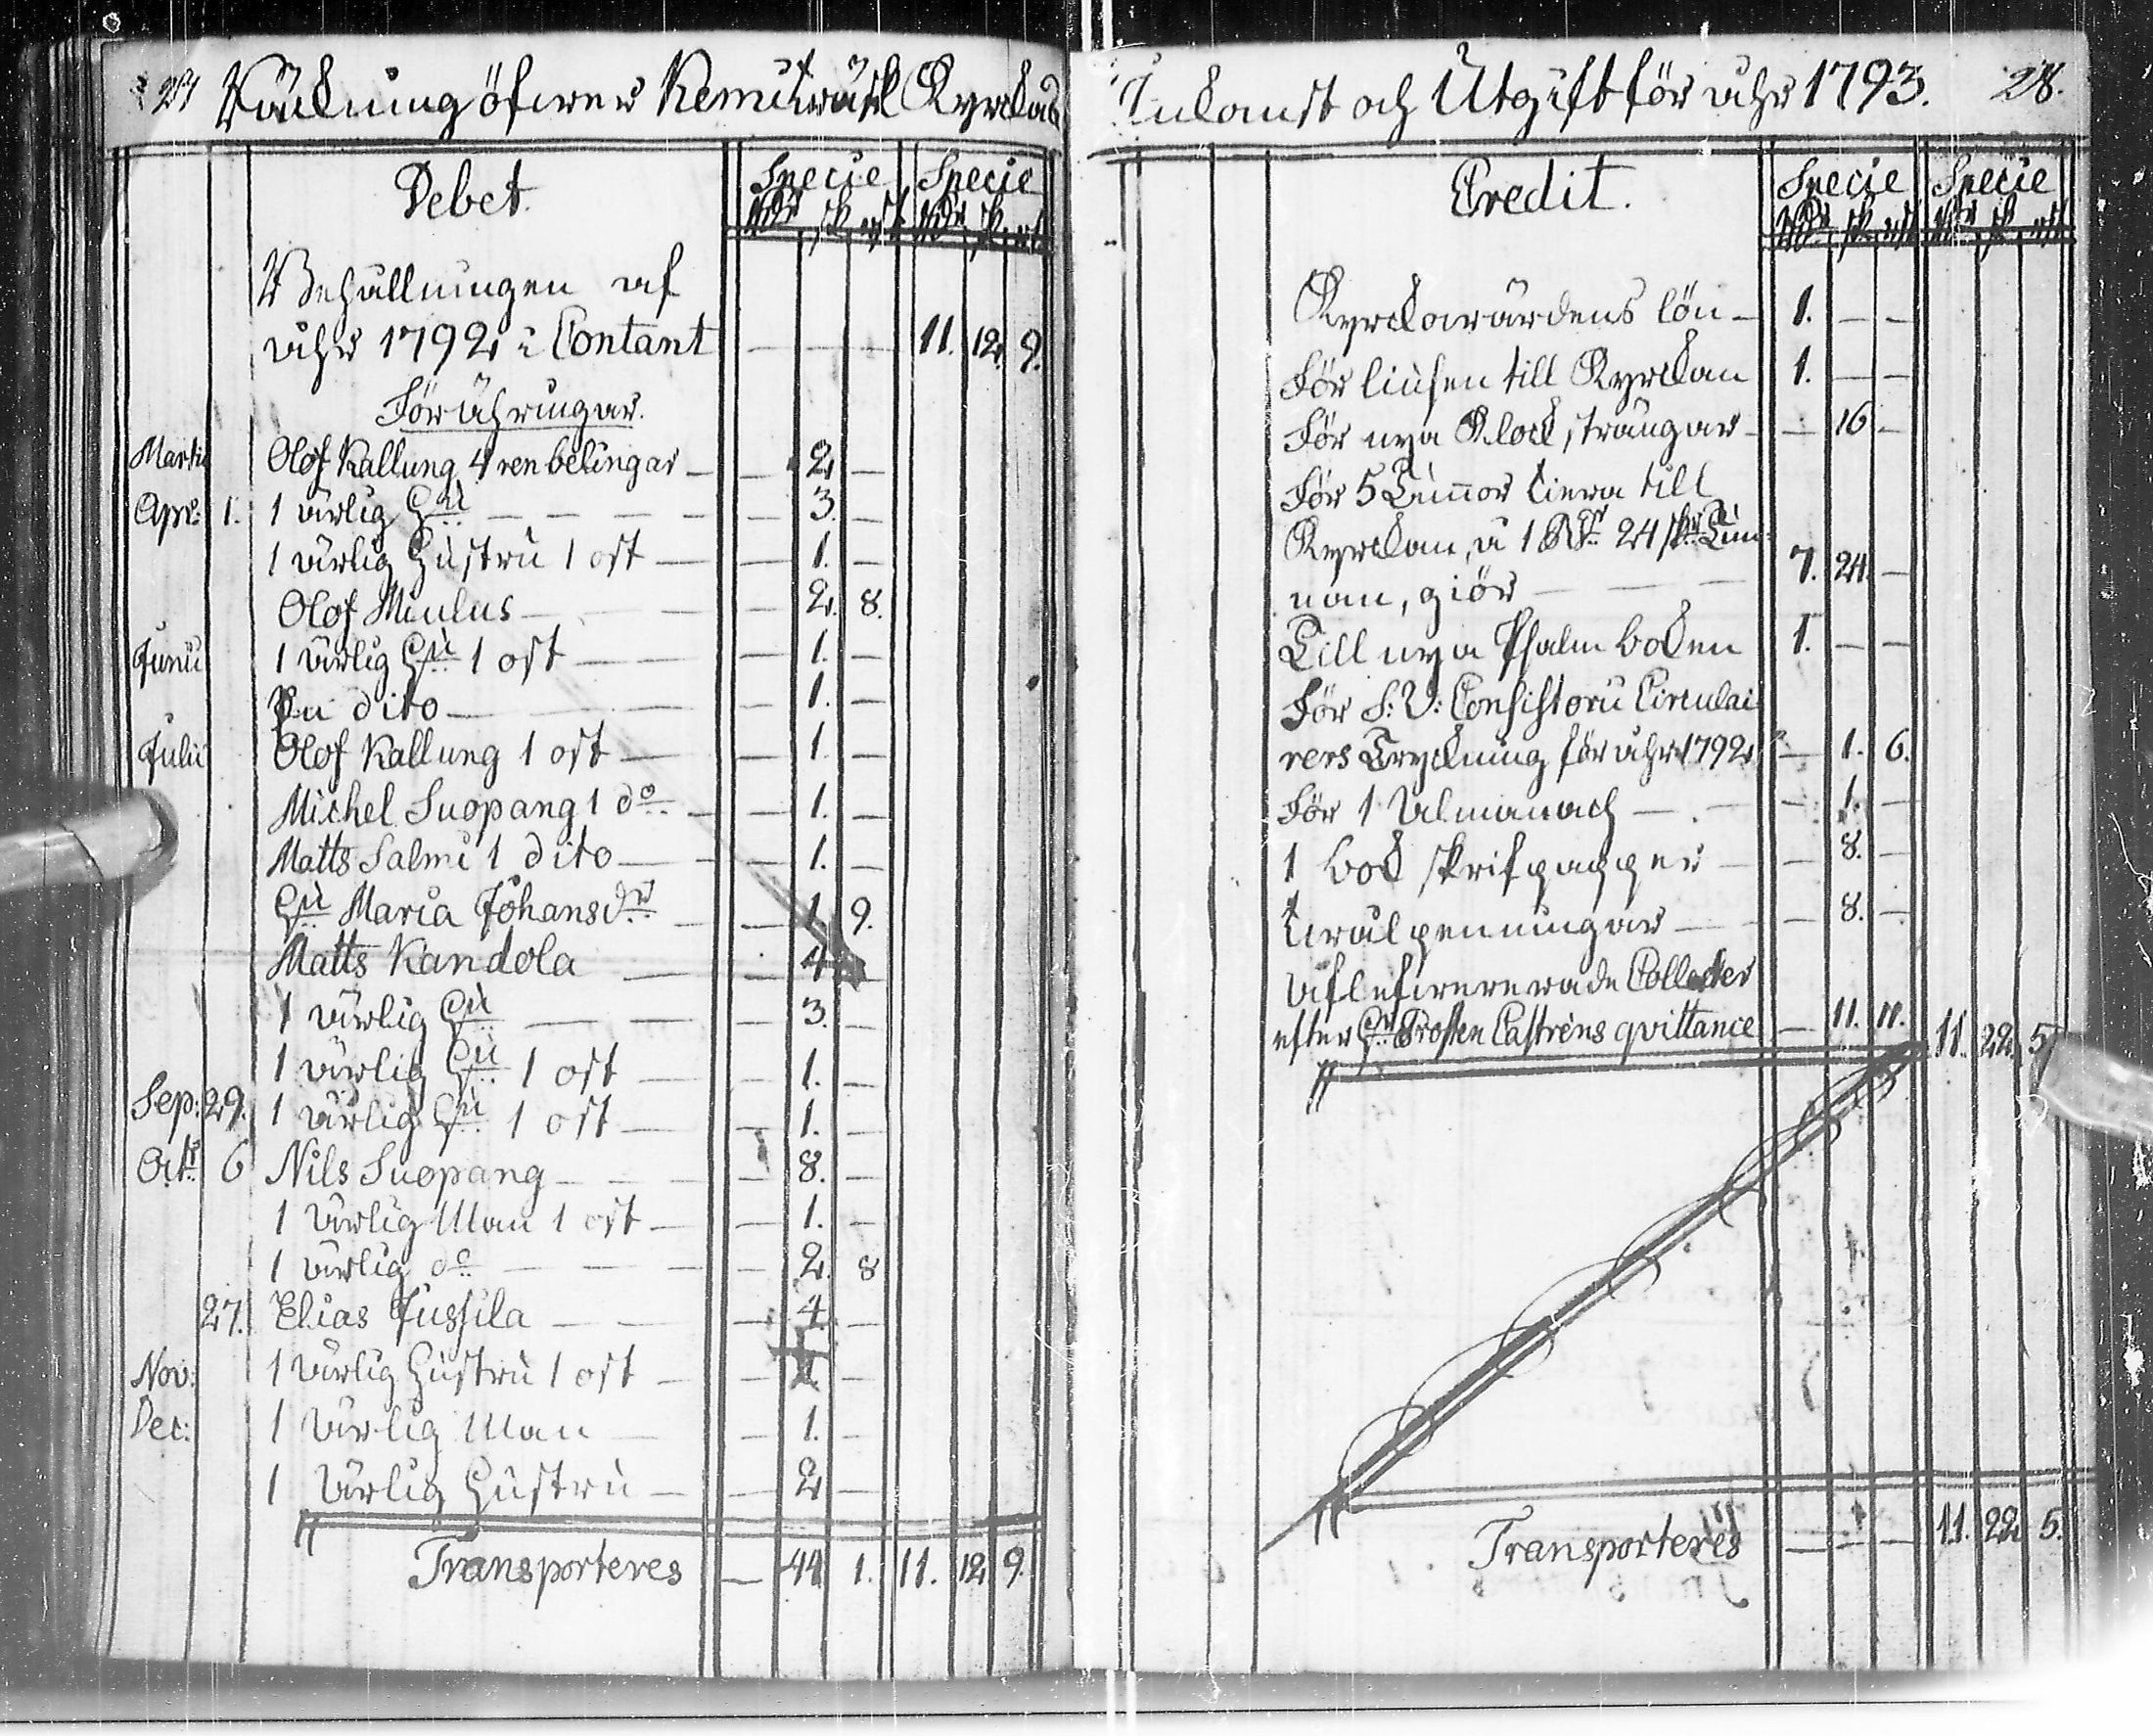 27 Räkning öfwer Kemiträsk Kyrckas
Debet. Specie Specie
Rdr sk. rst. Rdr sk. rst.
Behållningen af
åhr 1792 i Contant — — — 11. 12. 9.
Förähringar.
Martii Olof Kallung 4 renbelingar — — 2. —
Apr: 1. 1 ärlig Hu — — — — 3. —
1 ärlig Hustru 1 ost — — 1. —
Olof Miulus — — 2. 8.
Junii 1 ärlig Hu 1 ost — — 1. —
En dito — — 1. —
Julii Olof Kallung 1 ost — — 1. —
Michel Suopang 1 do — — 1. —
Matts Salmi 1 dito — — 1. —
Hu Maria Johansdr — — 1. 9.
Matts Kandola — — 4. —
1 ärlig Hu — — — 3. —
1 ärlig Hu 1 ost — — 1. —
Sep: 29. 1 ärlig Hu 1 ost — — 1. —
Octr 6 Nils Suopang — — — 8. —
1 ärlig Man 1 ost — — 1. —
1 ärlig do — — — 2. 8
27. Elias Jussila — — — 4. —
Nov: 1 ärlig Hustru 1 ost — — 1. —
Dec: 1 ärlig Man — — 1. —
1 ärlig Hustru — — 2 —
Transporteres — 44 1. 11. 12 9.
Inkomst och Utgift för åhr 1793. 28.
Credit. Specie Specie
Rdr sk. rst. Rdr sk. rst.
Kyrckowärdens lön — 1. — —
För liusen till Kyrckan 1. — —
För nya Klock strängar — — 16 —
För 5 Tunnor tiera till
Kyrckan, à 1 Rdr 24 sk. Tun-
nan, giör — — — 7. 24. —
Till nya Psalmboken 1. — —
För S: V: Consistorii Circulai
rers Tryckning för åhr 1792 — 1. 6.
För 1 Almanach — — — 1. —
1 bok skrifpapper — — 8. —
Qwalpenningar — — 8. —
Aflefwererade Collecter
efter Hr Prosten Castréns qvittance — 11. 11. 11. 22. 5.
Transporteres — — — 11. 22. 5.